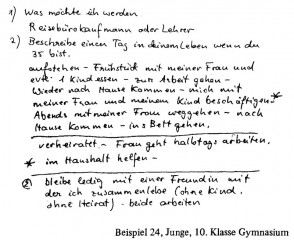 1) Was möchte ich werden
Reisebürokaufmann oder Lehrer
2) Beschreibe einen Tag in deinem Leben wenn du
35 bist.
aufstehen - Frühstück mit meiner Frau und
evtl. 1 Kind essen - zur Arbeit gehen -
wieder nach Hause kommen - mich mit
meiner Frau und meinem Kind beschäftigen *
Abends mit meiner Frau weggehen - nach
Hause kommen - ins Bett gehen.
verheiratet. - Frau geht halbtags arbeiten.
* im Haushalt helfen -
② bleibe ledig mit einer Freundin mit
der ich zusammenlebe (ohne Kind,
ohne Heirat) - beide arbeiten
Beispiel 24, Junge, 10. Klasse Gymnasium